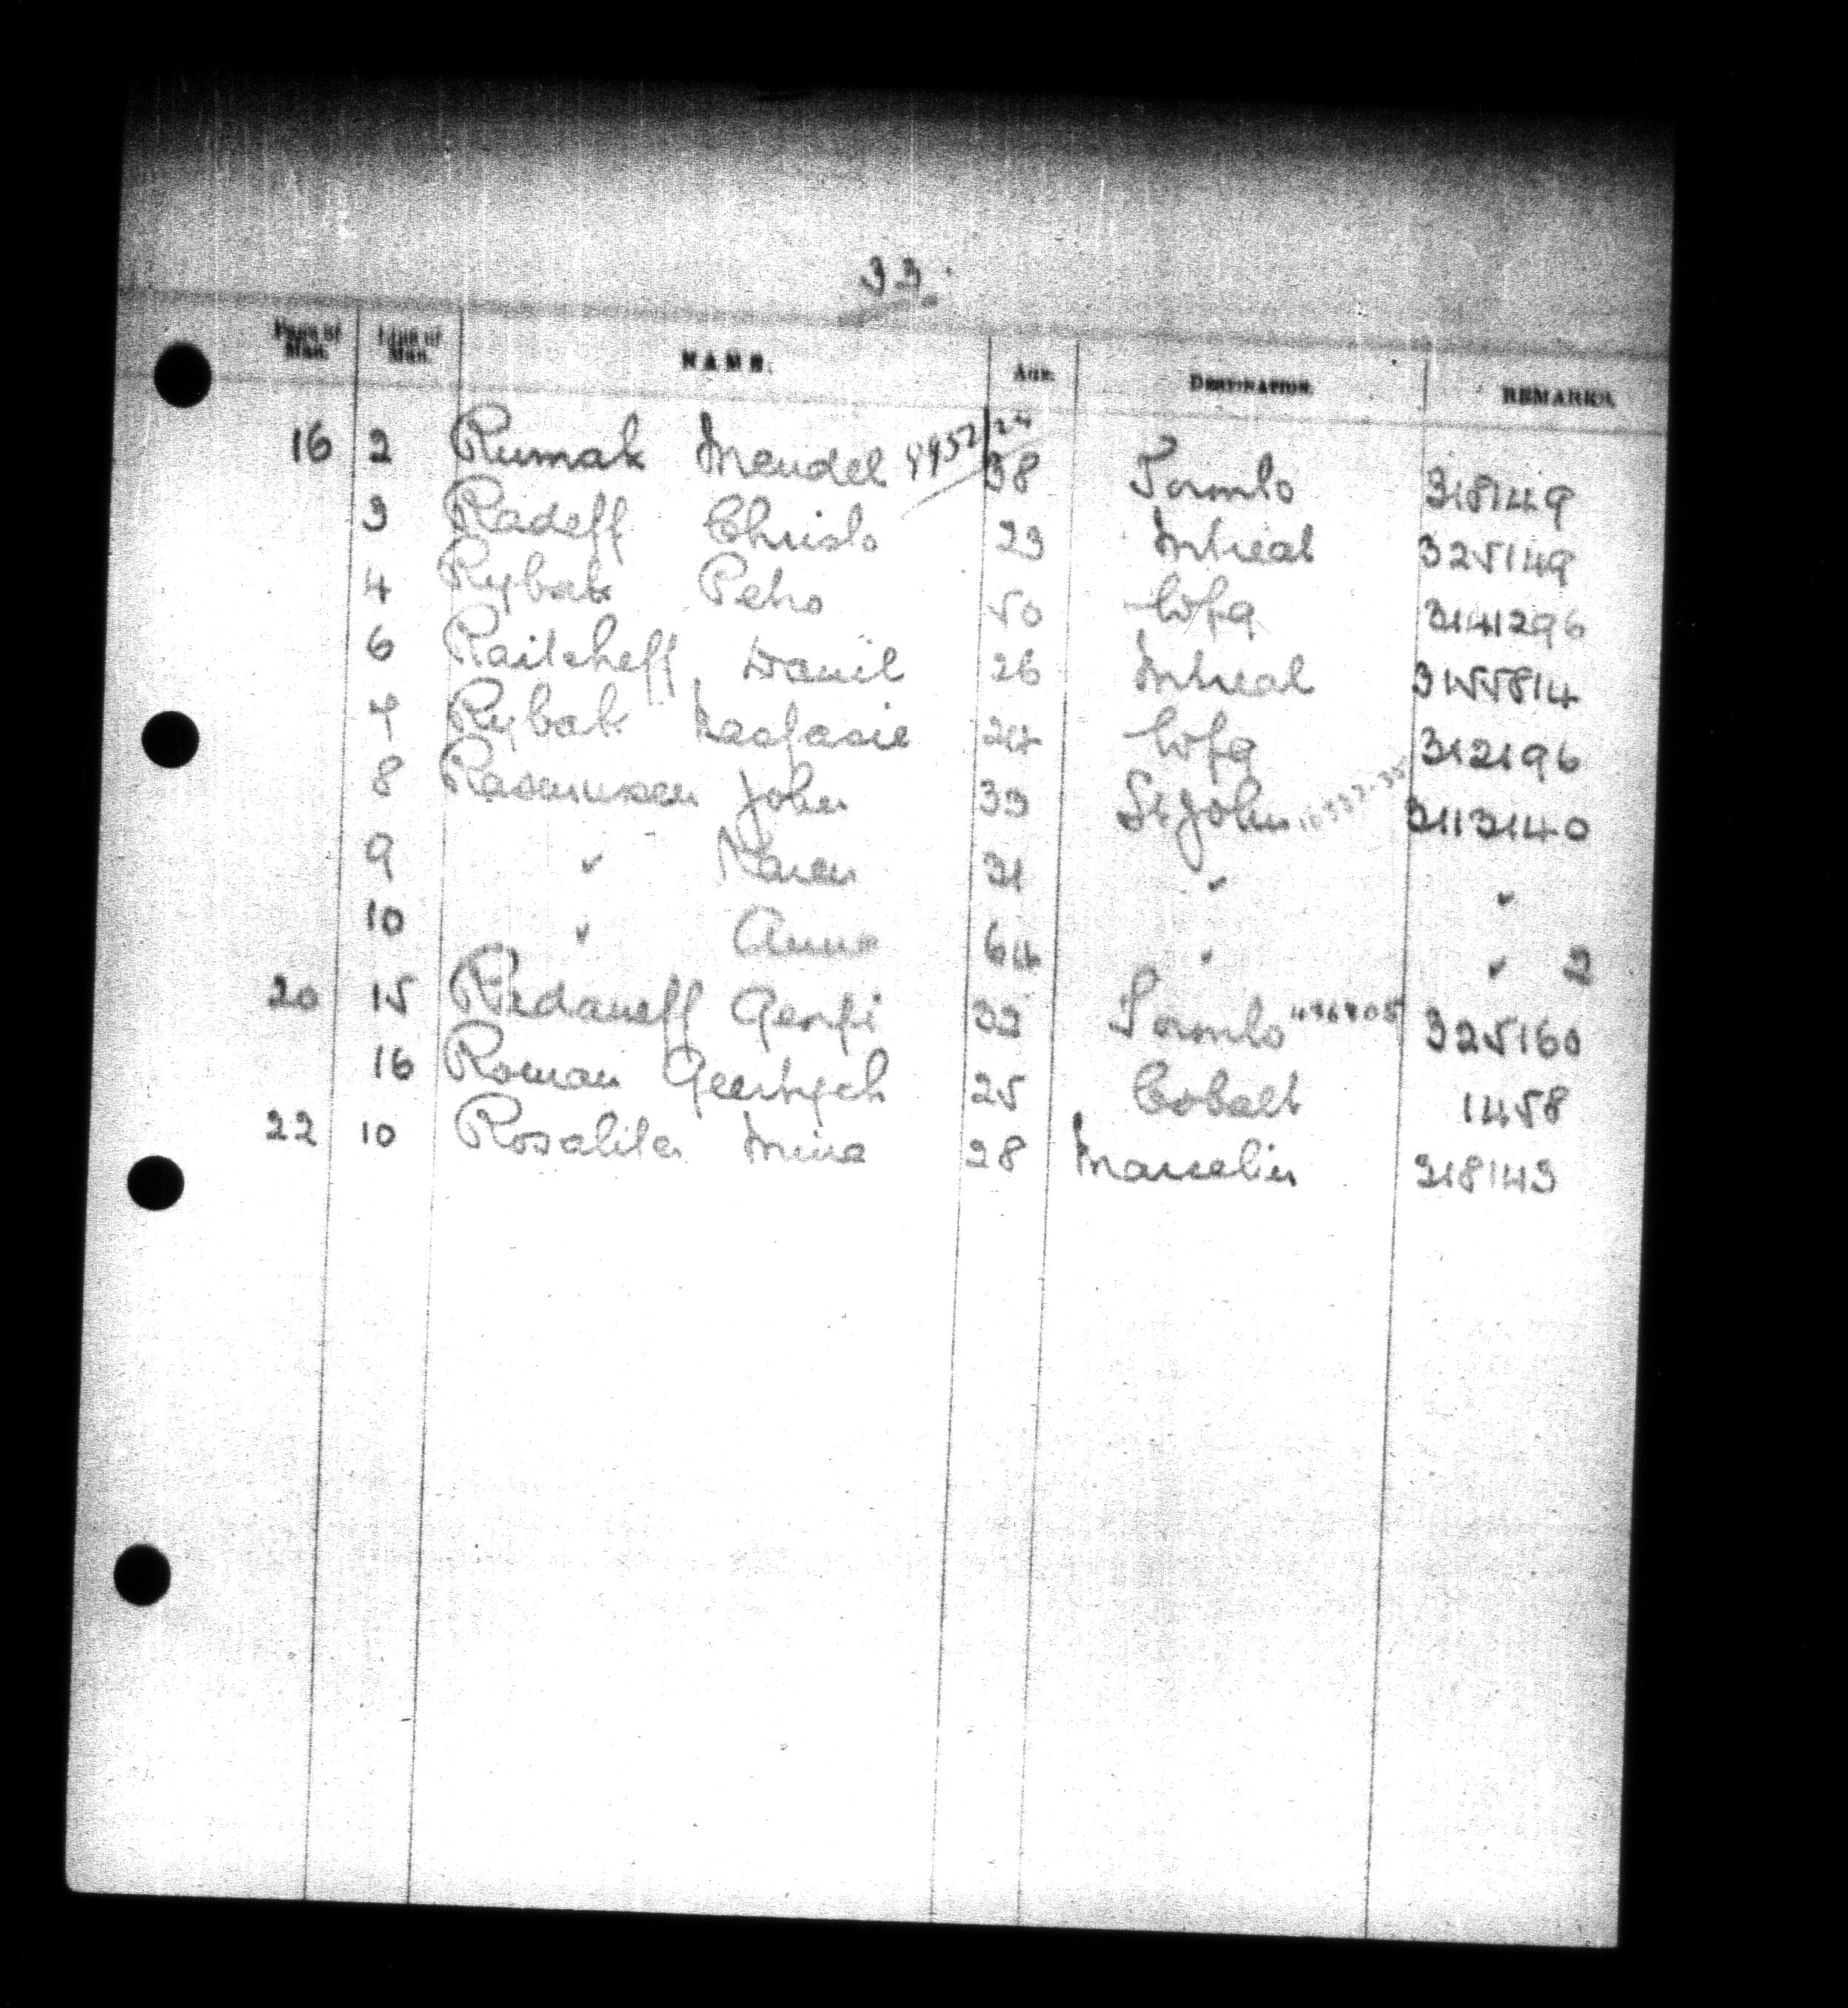 33.
Page of Man. Line of Man. NAME. AGE. DESTINATION. REMARKS.
16 2 Rumak Mendel 38 Toronto 318149
3 Radeff Christo 23 Mtreal 325149
4 Rybak Petro 50 Wpg 3141296
6 Raitcheff Danil 26 Mtreal 3155814
7 Rybak Nastasie 24 Wpg 312196
8 Rasmussen John 33 St John 3113140
9 " Karen 31 " "
10 " Anna 64 " " 2
20 15 Redaneff Gerfi 32 Toronto 325160
16 Roman 25 Cobalt 1458
22 10 Mina 28 318143